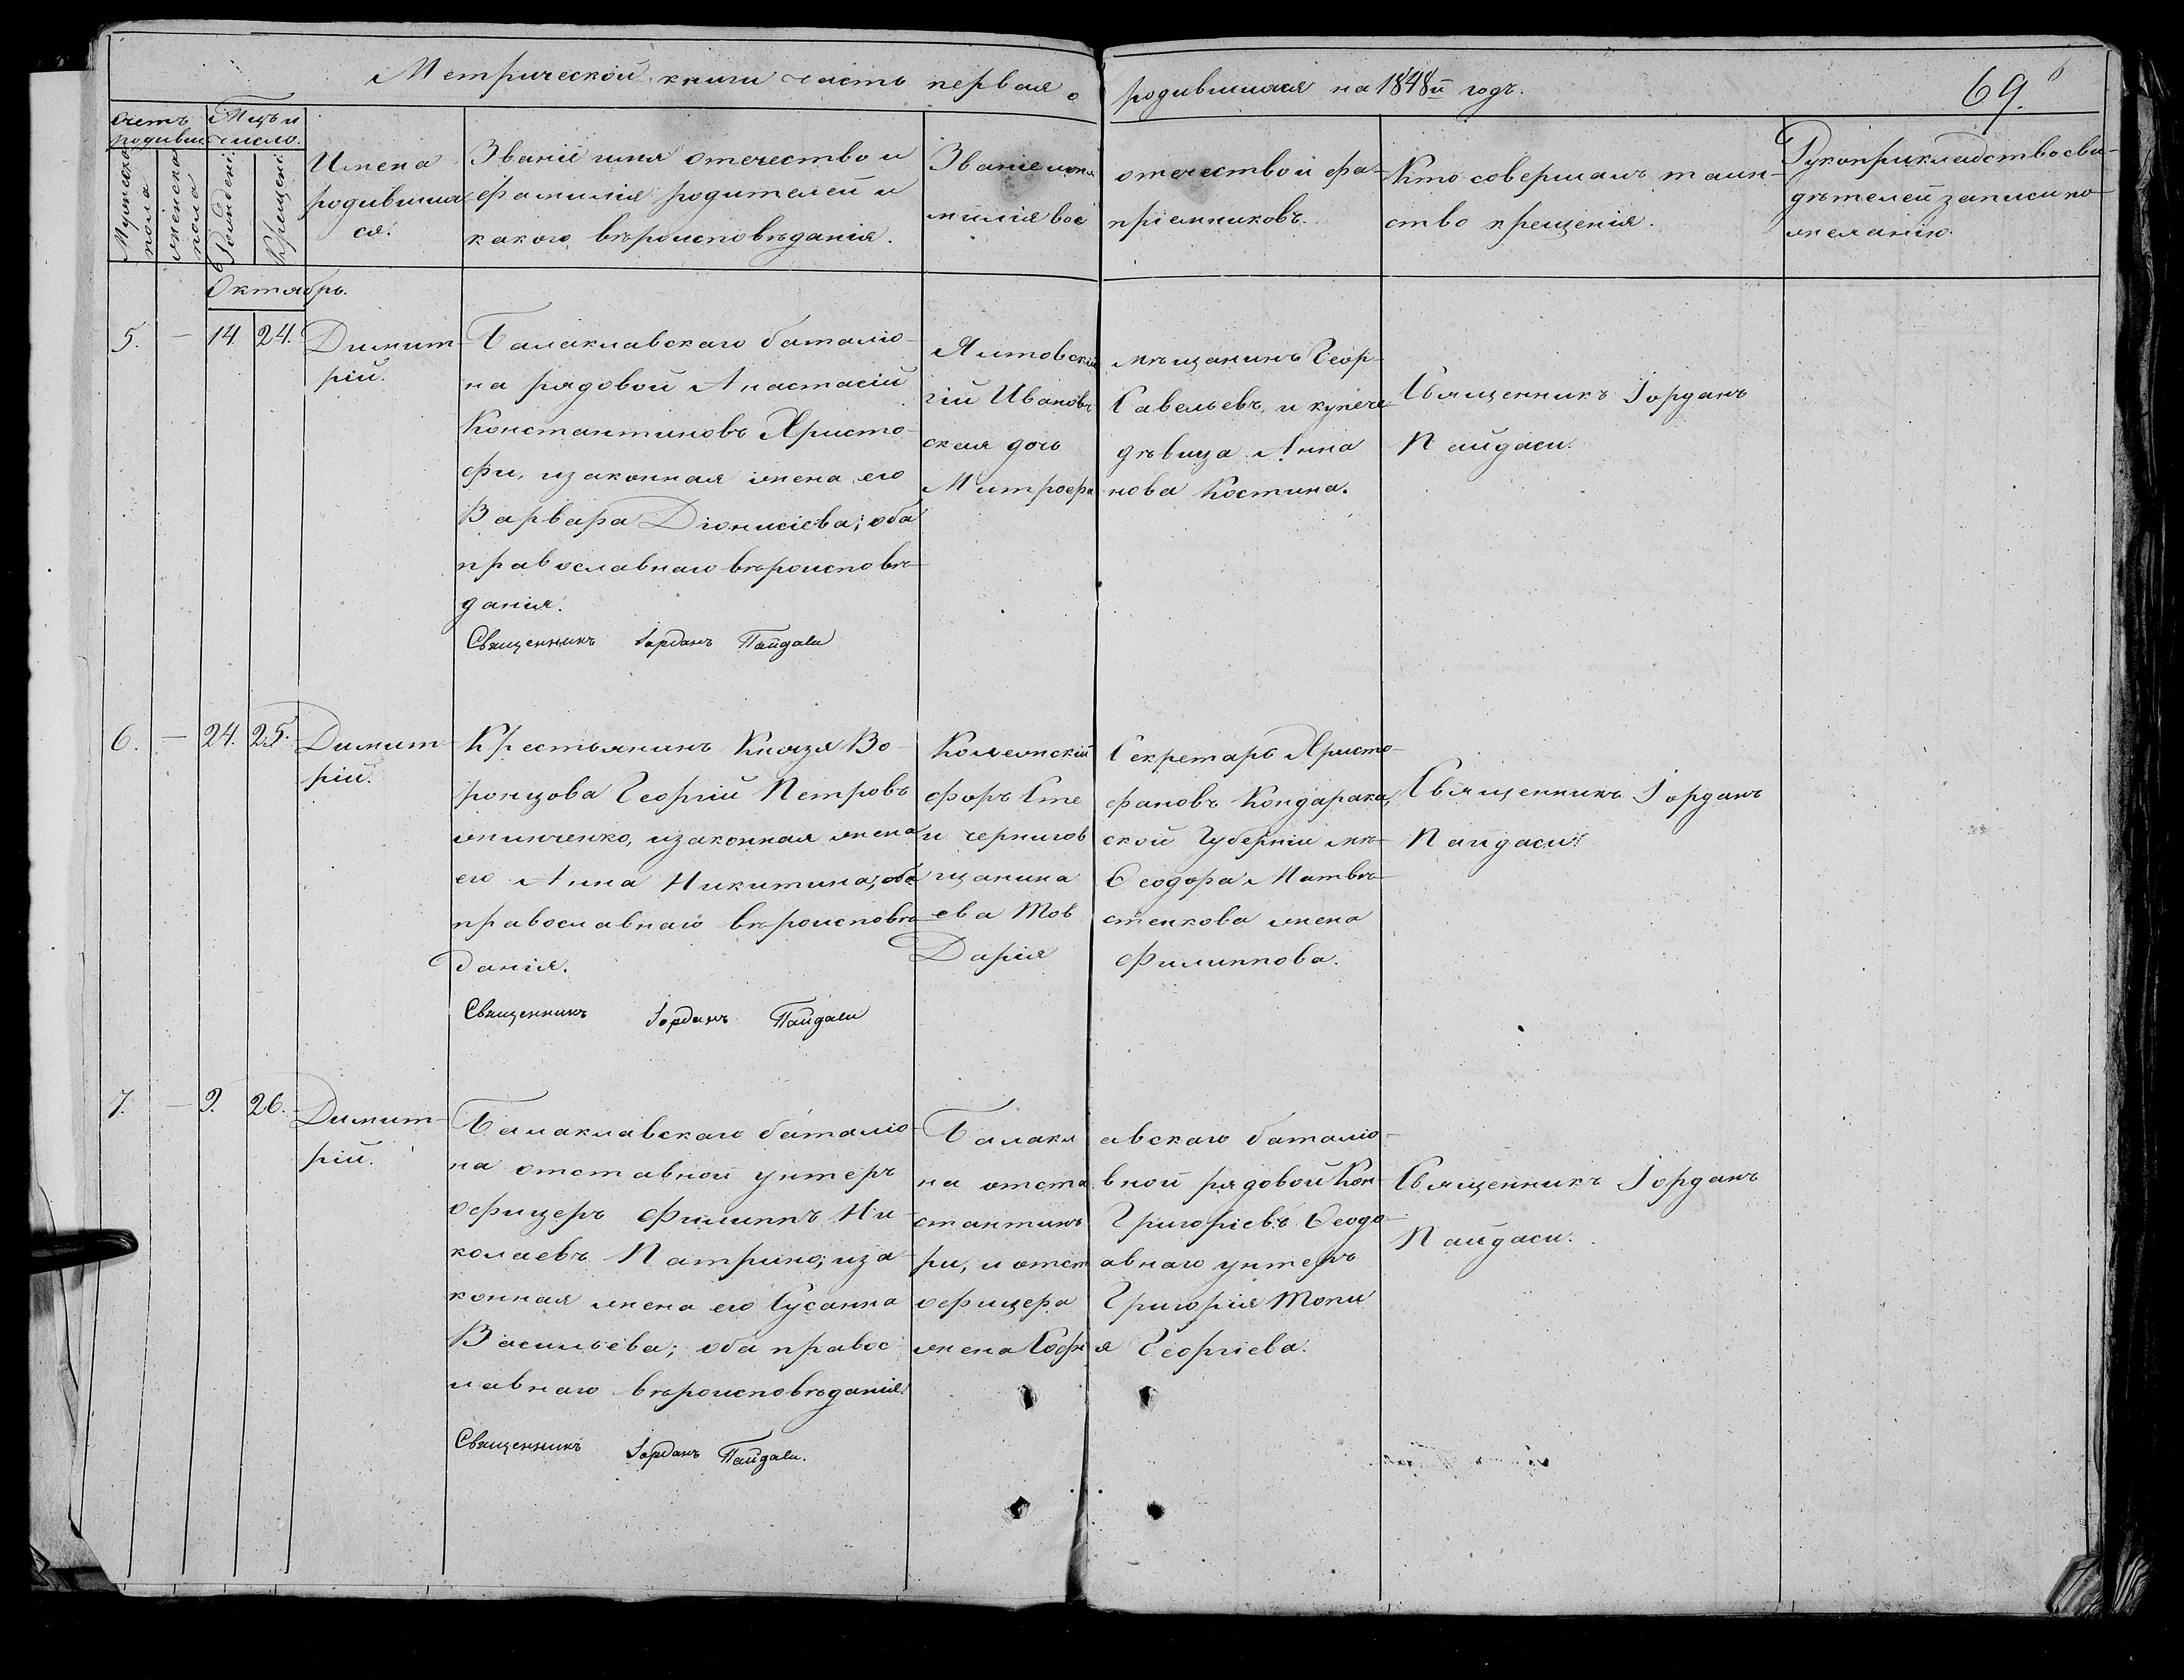 Метрической книги часть первая о родившихся на 1848й годъ. 69.
Счетъ родивш.
Мужеска пола
женска пола
Мѣц и число.
Рожден:
Крещен:
Имена
родивших
ся.
Званіе имя отечество и
фамилія родителей и
какого вѣроисповѣданія.
Званіе имя отечество и фа-
милія вос пріемниковъ.
Кто совершалъ таин-
ство крещенія.
Рукоприкладство сви-
дѣтелей записи по
желанію.
Октябрь.
5. — 14. 24.
Димит-
рій.
Балаклавскаго баталіо-
на рядовой Анастасій
Константиновъ Христо-
фи, и законная жена его
Варвара Діонисіева; оба
православнаго вѣроисповѣ-
данія.
Священникъ Іорданъ Пайдаси
Ялтовскій мѣщанинъ Геор-
гій Ивановъ Савельевъ, и купече
ская дочь дѣвица Анна
Митрофа нова Костина.
Священникъ Іорданъ
Пайдаси.
6. — 24. 25.
Димит-
рій.
Крестьянинъ Князя Во-
ронцова Георгій Петровъ
жинченко, и законная жена
его Анна Никитина; оба
православнаго вѣроисповѣ-
данія.
Священникъ Іорданъ Пайдаси
Колежскій Секретарь Христо-
форъ Сте фановъ Кондараки,
и чернигов ской Губерніи мѣ-
щанина Ѳеодора Матвѣ-
ева Тов стенкова жена
Дарія Филиппова.
Священникъ Іорданъ
Пайдаси.
7. — 9. 26.
Димит-
рій.
Балаклавскаго баталіо-
на отставной унтеръ
офицеръ Филиппъ Ни-
колаевъ Патрино, и за-
конная жена его Сусанна
Васильева; оба правос
лавнаго вѣроисповѣданія.
Священникъ Іорданъ Пайдаси.
Балакл авскаго баталіо-
на отста вной рядовой Кон-
стантинъ Григоріевъ Ѳеодо-
ри, и отст авнаго унтеръ
офицера Григорія Топи
жена Софи я Георгіева.
Священникъ Іорданъ
Пайдаси.